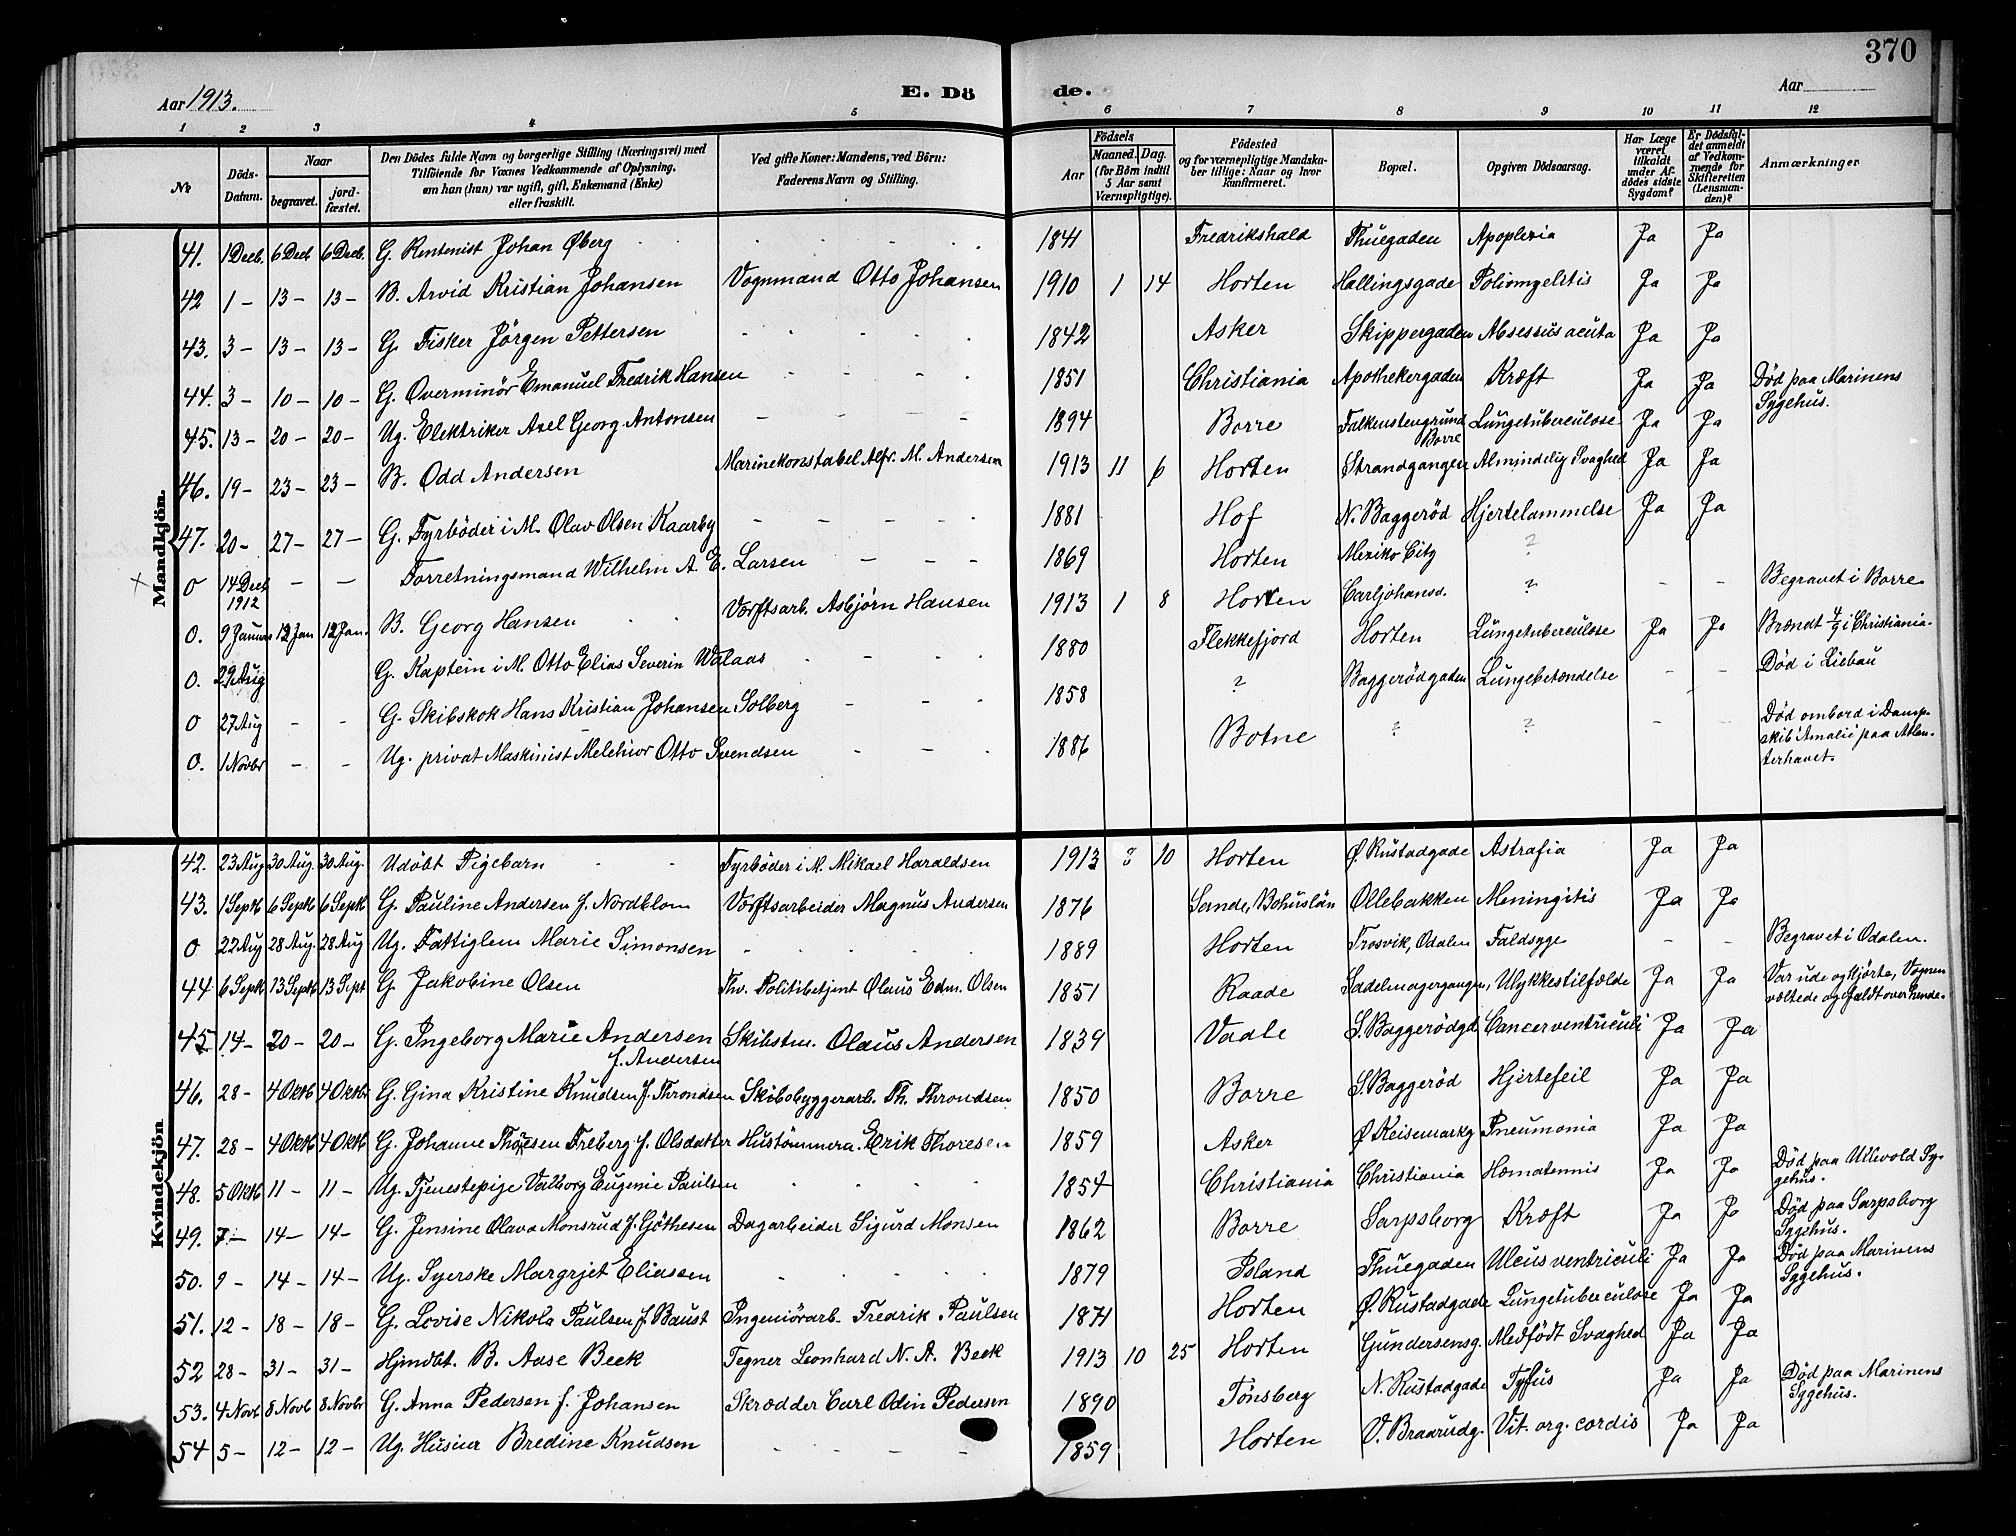 370
Aar 1913.
E. Dö de.
Aar
1 2 3 4 5 6 7 8 9 10 11 12
No
Döds-Datum.
Naar
begravet.
jord-fæstet.
Den Dödes fulde Navn og borgerlige Stilling (Næringsvei) med
Tilföiende for Voxnes Vedkommende af Oplysning,
om han (hun) var ugift, gift, Enkemand (Enke)
eller fraskilt.
Ved gifte Koner: Mandens, ved Börn:
Faderens Navn og Stilling.
Födsels
Aar
Maaned.
Dag.
(for Börn indtil
5 Aar samt
Værnepligtige).
Födested
og for værnepligtige Mandska-
ber tillige: Naar og hvor
konfirmeret.
Bopæl.
Opgiven Dödsaarsag.
Har Læge
været
tilkaldt
under Af-
dödes sidste
Sygdom?
Er Dödsfal-
det anmeldt
af Vedkom-
mende for
Skifteretten
(Lensman-
den)?
Anmærkninger
Mandkjön.
41. 1 Decb. 6 Decb 6 Decb. G. Rentenist Johan Øberg 1841 Fredrikshald Thuegaden Apoplexia Ja Ja
42 1 - 13 - 13 - B. Arvid Kristian Johansen Vognmand Otto Johansen 1910 1 14 Horten Hallingsgade Poliomyelitis Ja Ja
43. 3 - 13 - 13 - G. Fisker Jörgen Pettersen 1842 Asker Skippergaden Absessus acuta Ja Ja
44. 3 - 10 - 10 - G. Overminör Emanuel Fredrik Hansen 1851 Christiania Apothekergaden Kræft Ja Ja Död paa Marinens
Sygehus.
45. 13 - 20 - 20 - Ug. Elektriker Axel Georg Antonsen 1894 Borre Falkenstengrund
Borre Lungetuberculose Ja Ja
46. 19 - 23 - 23 - B. Odd Andersen Marinekonstabel Alfr. M. Andersen 1913 11 6 Horten Strandgangen Almindelig Svaghed Ja Ja
47. 20 - 27 - 27 - G. Fyrböder i M. Olav Olsen Kaarby 1881 Hof N. Baggerød Hjertelammelse Ja Ja
0 14 Decb
1912 - - Forretningsmand Wilhelm A. E. Larsen 1869 Horten Mexiko City ?
0. 9 Januar 12 Jan 12 Jan. B. Georg Hansen Værftsarb. Asbjørn Hansen 1913 1 8 Horten Carljohansv. ? - - Begravet i Borre
0. 29 Aug G. Kaptein i M. Otto Elias Severin Walaas 1880 Flekkefjord Horten Lungetuberculose Ja Ja Brændt 4/9 i Christiania
0 27 Aug - - G. Skibskok Hans Kristian Johansen Solberg 1858 ? Baggerødgaden Lungebetændelse - - Død i Liebau
0. 1 Novbr - - Ug. privat Maskinist Melchior Otto Svendsen 1886 Botne ? ? - - Død ombord i Damp-
skib Amalie paa Atlan-
terhavet.
Kvindekjön
42. 23 Aug 30 Aug. 30 Aug. Udøbt Pigebarn Fyrböder i M. Mikael Haraldsen 1913 10 Horten Ø. Rustadgade Astrafia Ja Ja
43. 1 Septb 6 Septb 6 Septb G. Pauline Andersen f. Nordblom Værftsarbeider Magnus Andersen 1876 Sande, Bohuslän Ollebakken Meningitis Ja Ja
0 22 Aug 28 Aug. 28 Aug Ug. Fattiglem Marie Simonsen 1889 Horten Trosvik, Odalen Faldsyge - - Begravet i Odalen.
44 6 Septb 13 Septb 13 Sept G. Jakobine Olsen Fhv. Politibetjent Olaus Edm. Olsen 1851 Raade Sadelmagergangen, Ulykkestilfælde Ja Ja Var ude og kjörte, Vognen
væltede og faldt over hende.
45. 14 - 20 - 20 - G. Ingeborg Marie Andersen
f. Andersen Skibstm. Olaus Andersen 1839 Vaale S. Baggerødgd. Cancer ventriculi Ja Ja
46. 28 - 4 Oktb 4 Oktbr G. Gina Kristine Knudsen f. Throndsen Skibsbyggerarb. Th. Throndsen 1850 Borre S. Baggerød Hjertefeil Ja Ja
47. 28 - 4 Oktb 4 Oktb G. Johanne Thoresen Freberg f. Olsdatter Hustömmerm. Erik Thoresen 1859 Asker Ø. Keisemarkg Pneumonia Ja Ja
48. 5 Oktb 11 - 11 - Ug. Tjenestepige Valborg Eugenie Paulsen 1854 Christiania Christiania Hæmatemis Ja Ja Død paa Ullevold Sy-
gehus.
49. 7 - 14 - 14 - G. Jensine Olava Monsrud f. Göthesen Dagarbeider Sigurd Monsen 1862 Borre Sarpsborg Kræft Ja Ja Død paa Sarpsborg
Sygehus.
50. 9 - 14 - 14 - Ug. Syerske Margrjet Eliassen 1879 Island Thuegaden Ulcus ventriculi Ja Ja Død paa Marinens
Sygehus.
51. 12 - 18 - 18 - G. Lovise Nikola Paulsen f. Baust Ingeniörarb. Fredrik Paulsen 1871 Horten Ø. Rustadgade Lungetuberculose Ja Ja
52 28 - 31 - 31 - Hjmdbt. B. Aase Beck Tegner Leonhard N. A. Beck 1913 10 25 Horten Gundersensg. Medfödt Svaghed Ja Ja
53. 4 Novb 8 Novb 8 Novbr G. Anna Pedersen f. Johansen Skrædder Carl Odin Pedersen 1890 Tönsberg N. Rustadgade Tyfus Ja Ja Død paa Marinens
Sygehus.
54 5 - 12 - 12 - Ug. Husier Bredine Knudsen 1859 Horten V. Braarudg. Vit. org. cordis Ja Ja